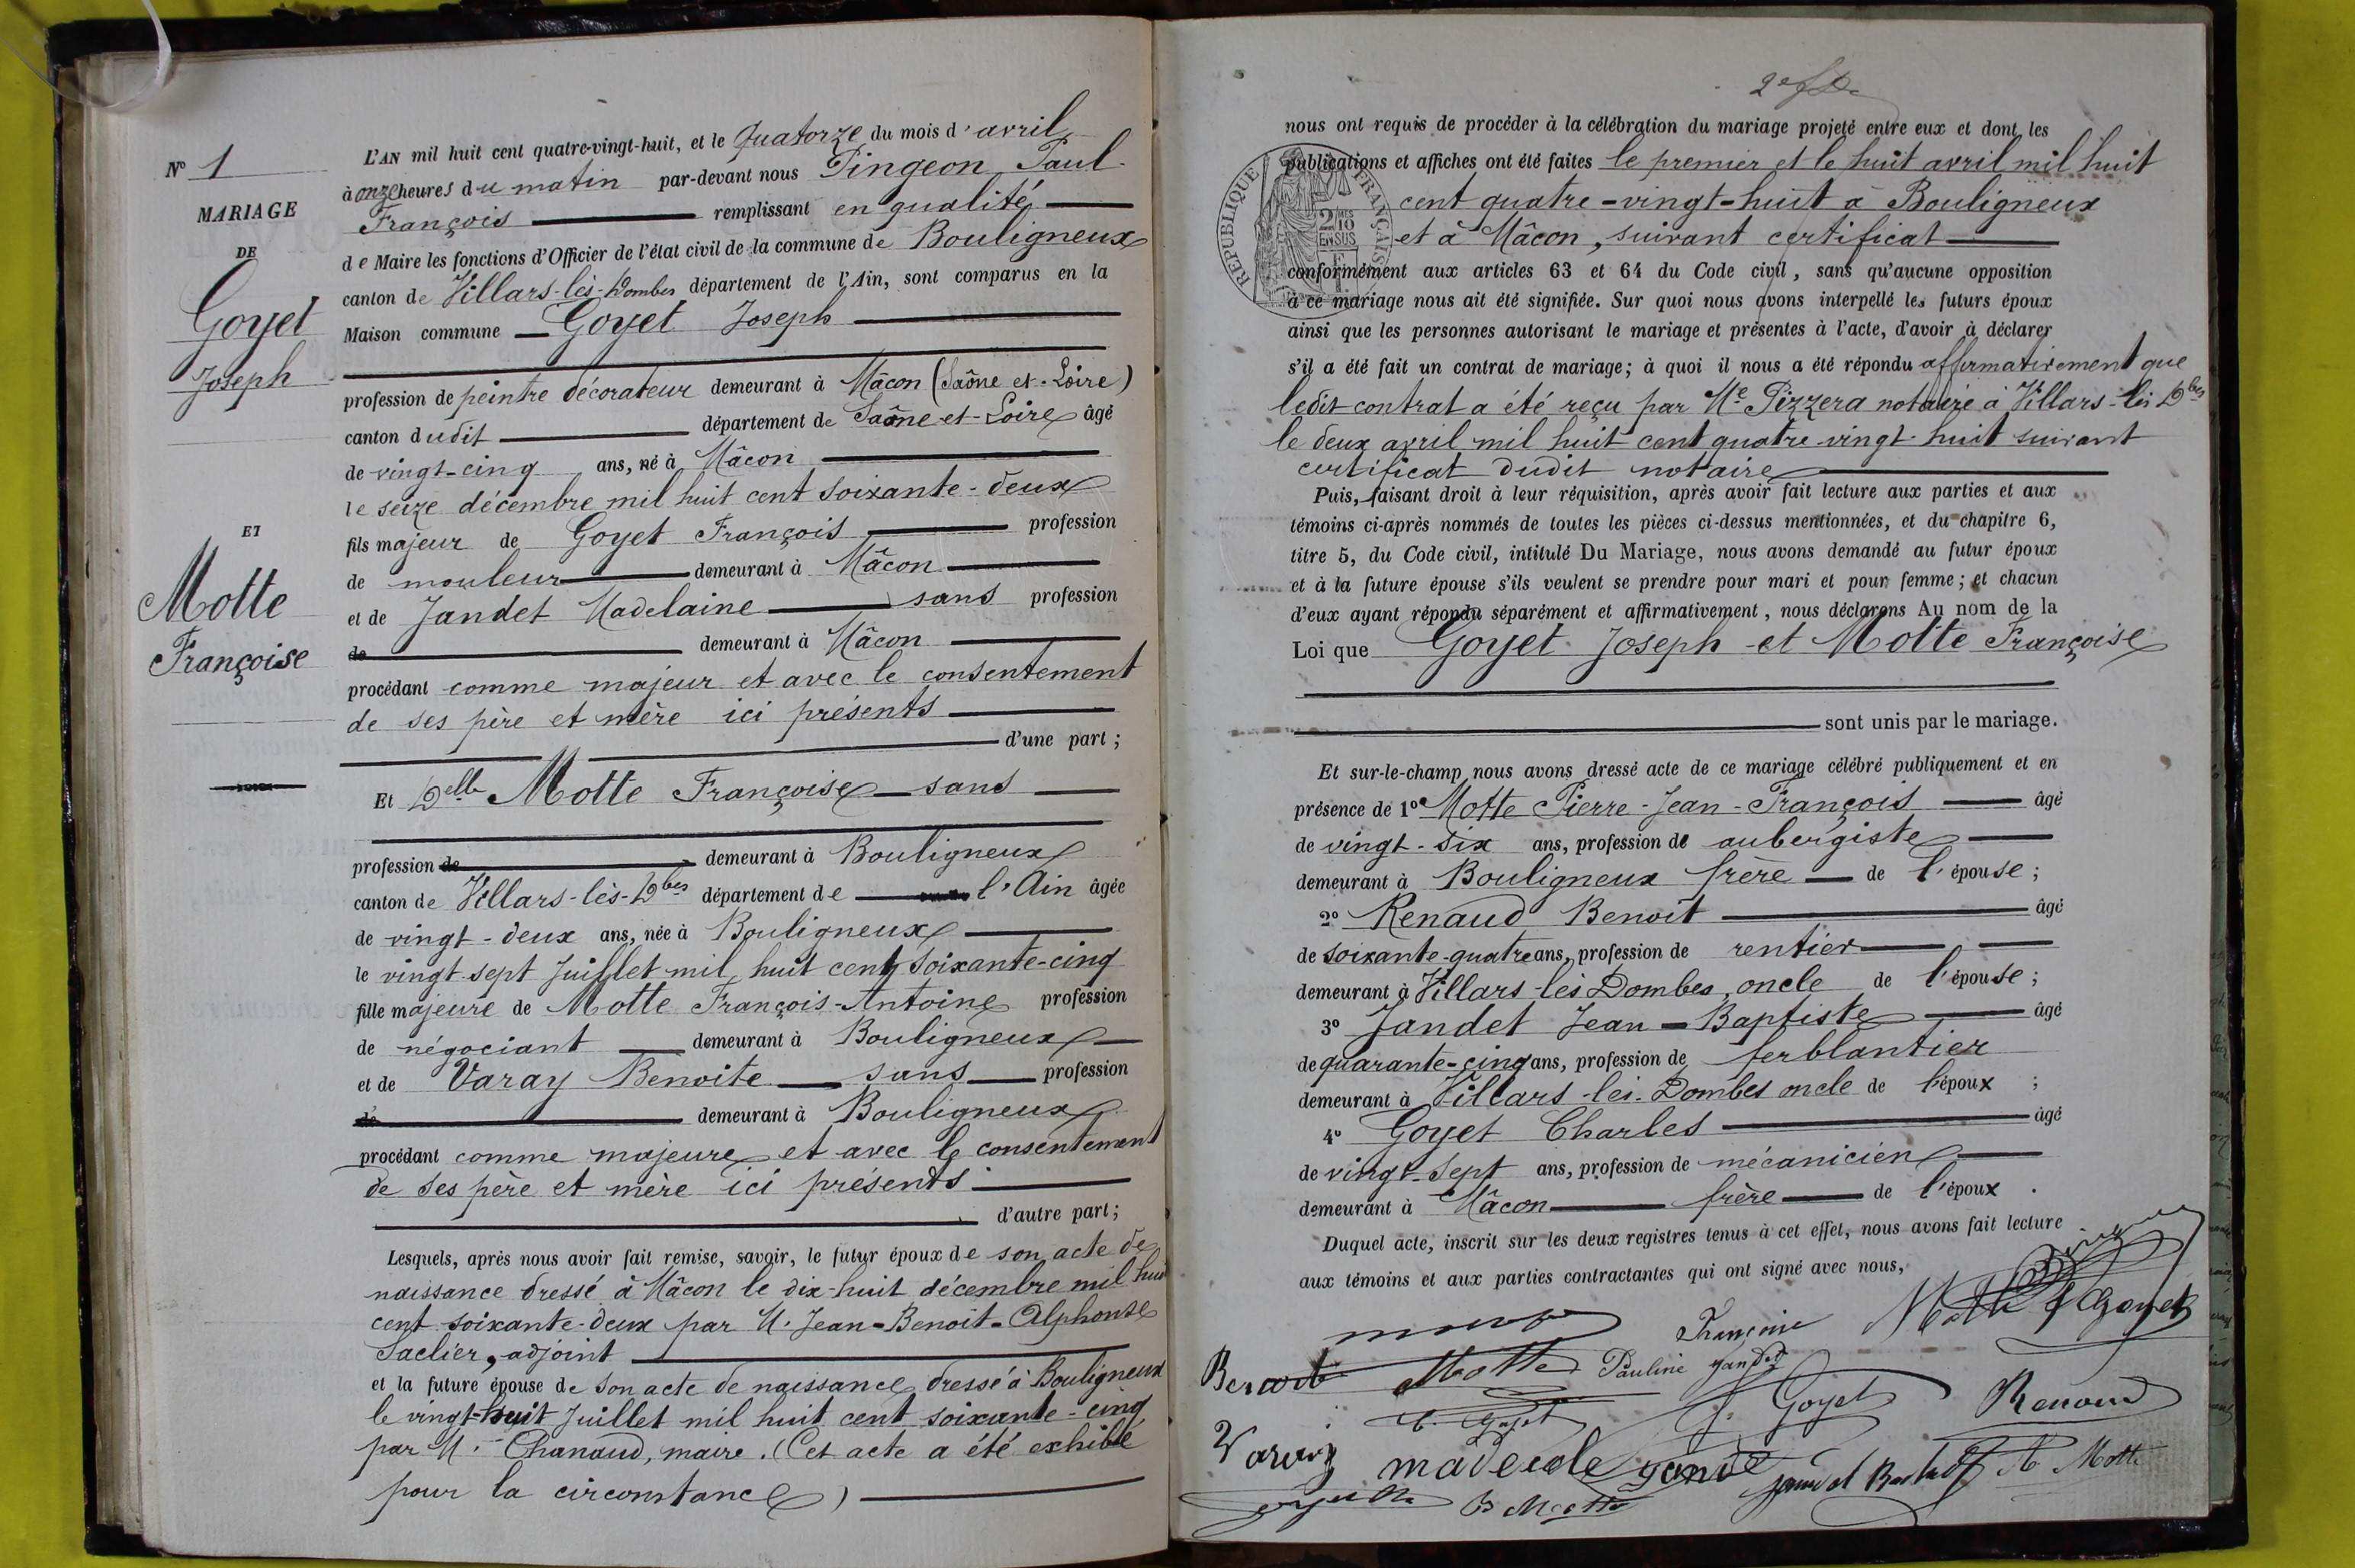 N° 1
MARIAGE
DE
Goyet
Joseph
ET
Motte
Françoise
L'AN mil huit cent quatre-vingt-huit, et le Quatorze du mois d'avril
à onze heures du matin par-devant nous Pingeon Paul
François remplissant en qualité
de Maire les fonctions d'Officier de l'état civil de la commune de Bouligneux
canton de Villars-lès-Dombes département de l'Ain, sont comparus en la
Maison commune Goyet Joseph
profession de peintre décorateur demeurant à Mâcon (Saône-et-Loire)
canton dudit département de Saône-et-Loire âgé
de vingt-cinq ans, né à Mâcon
le seize décembre mil huit cent soixante-deux
fils majeur de Goyet François profession
de mouleur demeurant à Mâcon
et de Jandet Madelaine sans profession
de demeurant à Mâcon
procédant comme majeur et avec le consentement
de ses père et mère ici présents
d'une part ;
Et Delle Motte Françoise sans
profession de demeurant à Bouligneux
canton de Villars-lès-Dbes département de l'Ain âgée
de vingt-deux ans, née à Bouligneux
le vingt-sept Juillet mil huit cent soixante-cinq
fille majeure de Motte François-Antoine profession
de négociant demeurant à Bouligneux
et de Varay Benoite sans profession
de demeurant à Bouligneux
procédant comme majeure et avec le consentement
de ses père et mère ici présents
d'autre part ;
Lesquels, après nous avoir fait remise, savoir, le futur époux de son acte de
naissance dressé à Mâcon le dix-huit décembre mil huit
cent soixante-deux par M. Jean-Benoit-Alphonse
Saclier, adjoint
et la future épouse de son acte de naissance dressé à Bouligneux
le vingt-huit Juillet mil huit cent soixante-cinq
par M. Chanaud, maire. (Cet acte a été exhibé
pour la circonstance)
nous ont requis de procéder à la célébration du mariage projeté entre eux et dont les
publications et affiches ont été faites le premier et le huit avril mil huit
cent quatre-vingt-huit à Bouligneux
et à Mâcon, suivant certificat
RÉPUBLIQUE FRANÇAISE
2/10 EN SUS
conformément aux articles 63 et 64 du Code civil, sans qu'aucune opposition
à ce mariage nous ait été signifiée. Sur quoi nous avons interpellé les futurs époux
ainsi que les personnes autorisant le mariage et présentes à l'acte, d'avoir à déclarer
s'il a été fait un contrat de mariage ; à quoi il nous a été répondu affirmativement que
ledit contrat a été reçu par Me Pizzera notaire à Villars-lès-Dbes
le deux avril mil huit cent quatre-vingt-huit suivant
certificat dudit notaire
Puis, faisant droit à leur réquisition, après avoir fait lecture aux parties et aux
témoins ci-après nommés de toutes les pièces ci-dessus mentionnées, et du chapitre 6,
titre 5, du Code civil, intitulé Du Mariage, nous avons demandé au futur époux
et à la future épouse s'ils veulent se prendre pour mari et pour femme ; et chacun
d'eux ayant répondu séparément et affirmativement, nous déclarons Au nom de la
Loi que Goyet Joseph et Motte Françoise
sont unis par le mariage.
Et sur-le-champ nous avons dressé acte de ce mariage célébré publiquement et en
présence de 1° Motte Pierre-Jean-François âgé
de vingt-six ans, profession de aubergiste
demeurant à Bouligneux frère de l'épouse ;
2° Renaud Benoit âgé
de soixante-quatre ans, profession de rentier
demeurant à Villars-lès-Dombes, oncle de l'épouse ;
3° Jandet Jean-Baptiste âgé
de quarante-cinq ans, profession de ferblantier
demeurant à Villars-lès-Dombes oncle de l'époux ;
4° Goyet Charles âgé
de vingt-sept ans, profession de mécanicien
demeurant à Mâcon frère de l'époux.
Duquel acte, inscrit sur les deux registres tenus à cet effet, nous avons fait lecture
aux témoins et aux parties contractantes qui ont signé avec nous,
Françoise Motte
F Goyet
Motte
Pauline Jandet
Goyet
Renaud
Varay
B Motte
Motte